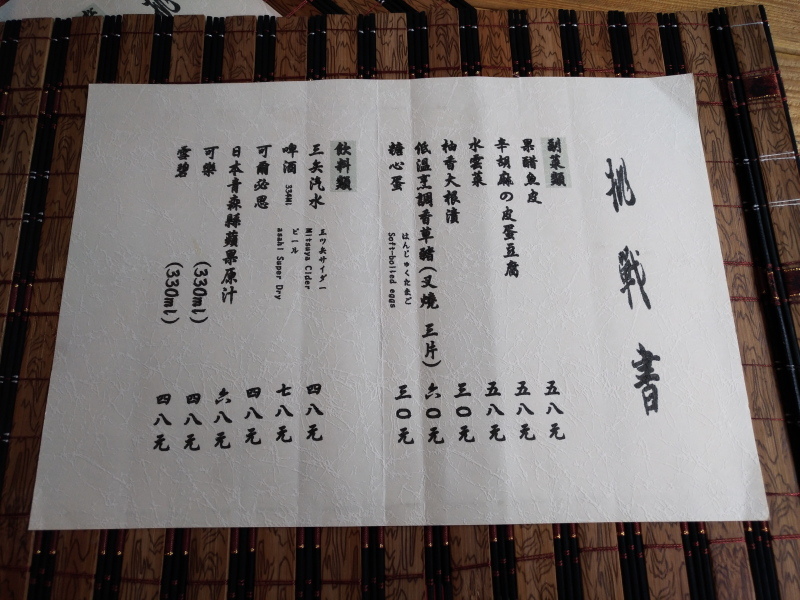 挑戰書
副菜類
果醋魚皮 五八元
辛胡麻の皮蛋豆腐 五八元
水雲菜 五八元
柚香大根漬 三〇元
低溫烹調香草豬(叉燒 三片) 六〇元
糖心蛋 はんじゅくたまご Soft-boiled eggs 三〇元
飲料類
三矢汽水 三ツ矢サイダー Mitsuya Cider 四八元
啤酒 334Ml ビール asahi Super Dry 七八元
可爾必思 四八元
日本青森縣蘋果原汁 六八元
可樂 (330ml) 四八元
雪碧 (330ml) 四八元